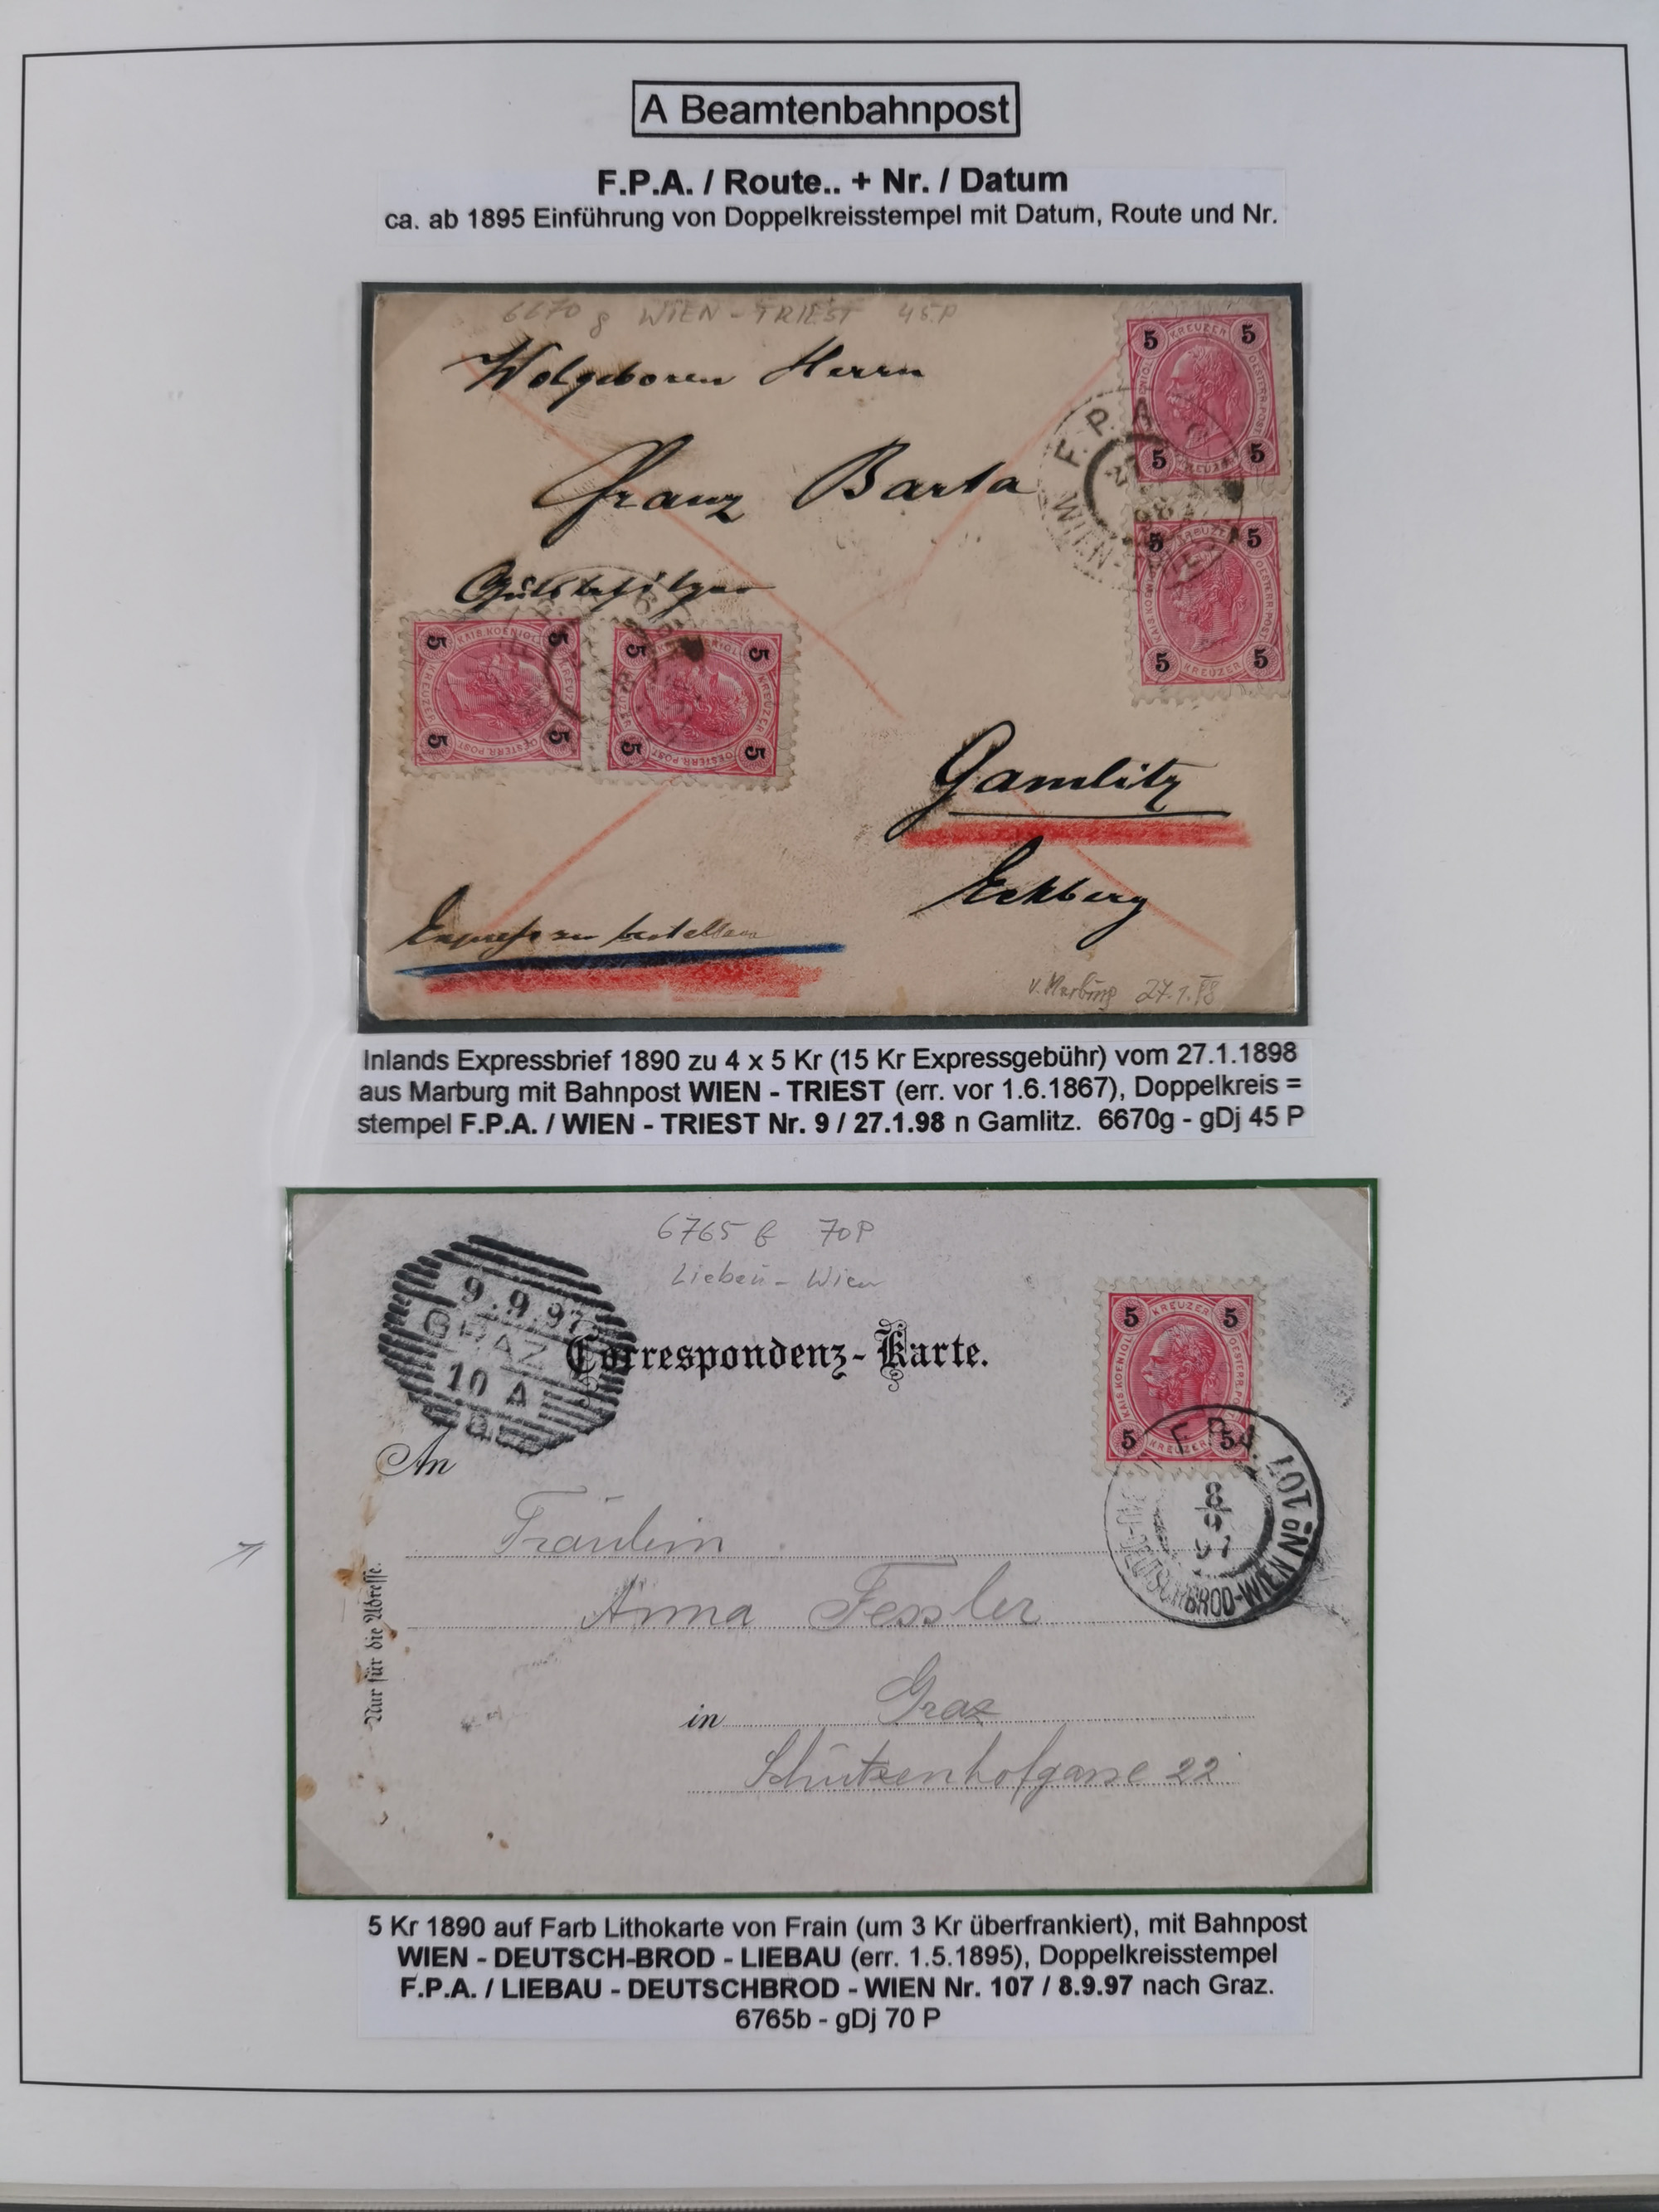 A Beamtenbahnpost
F.P.A. / Route.. + Nr. / Datum
ca. ab 1895 Einführung von Doppelkreisstempel mit Datum, Route und Nr.
6670 g WIEN - TRIEST 45 P
Wolgeboren Herrn
Franz Barta
Gutsbesitzer
Gamlitz
Eckberg
Express zu bestellen
v. Marburg 27.1.98
5 KREUZER 5
KAIS. KOENIGL. OESTERR. POST.
5 KREUZER 5
F.P.A. 9
27
98
WIEN-TRIEST
Inlands Expressbrief 1890 zu 4 x 5 Kr (15 Kr Expressgebühr) vom 27.1.1898
aus Marburg mit Bahnpost WIEN - TRIEST (err. vor 1.6.1867), Doppelkreis =
stempel F.P.A. / WIEN - TRIEST Nr. 9 / 27.1.98 n Gamlitz. 6670g - gDj 45 P
6765 b 70P
Liebau - Wien
9.9.97
GRAZ
10 A
Correspondenz-Karte.
5 KREUZER 5
KAIS. KOENIGL. OESTERR. POST.
5 KREUZER 5
F.P.A.
8
9
97
DEUTSCHBROD-WIEN No 107
An
Fräulein
Anna Fessler
in Graz
Schützenhofgasse 22
Nur für die Adresse.
5 Kr 1890 auf Farb Lithokarte von Frain (um 3 Kr überfrankiert), mit Bahnpost
WIEN - DEUTSCH-BROD - LIEBAU (err. 1.5.1895), Doppelkreisstempel
F.P.A. / LIEBAU - DEUTSCHBROD - WIEN Nr. 107 / 8.9.97 nach Graz.
6765b - gDj 70 P